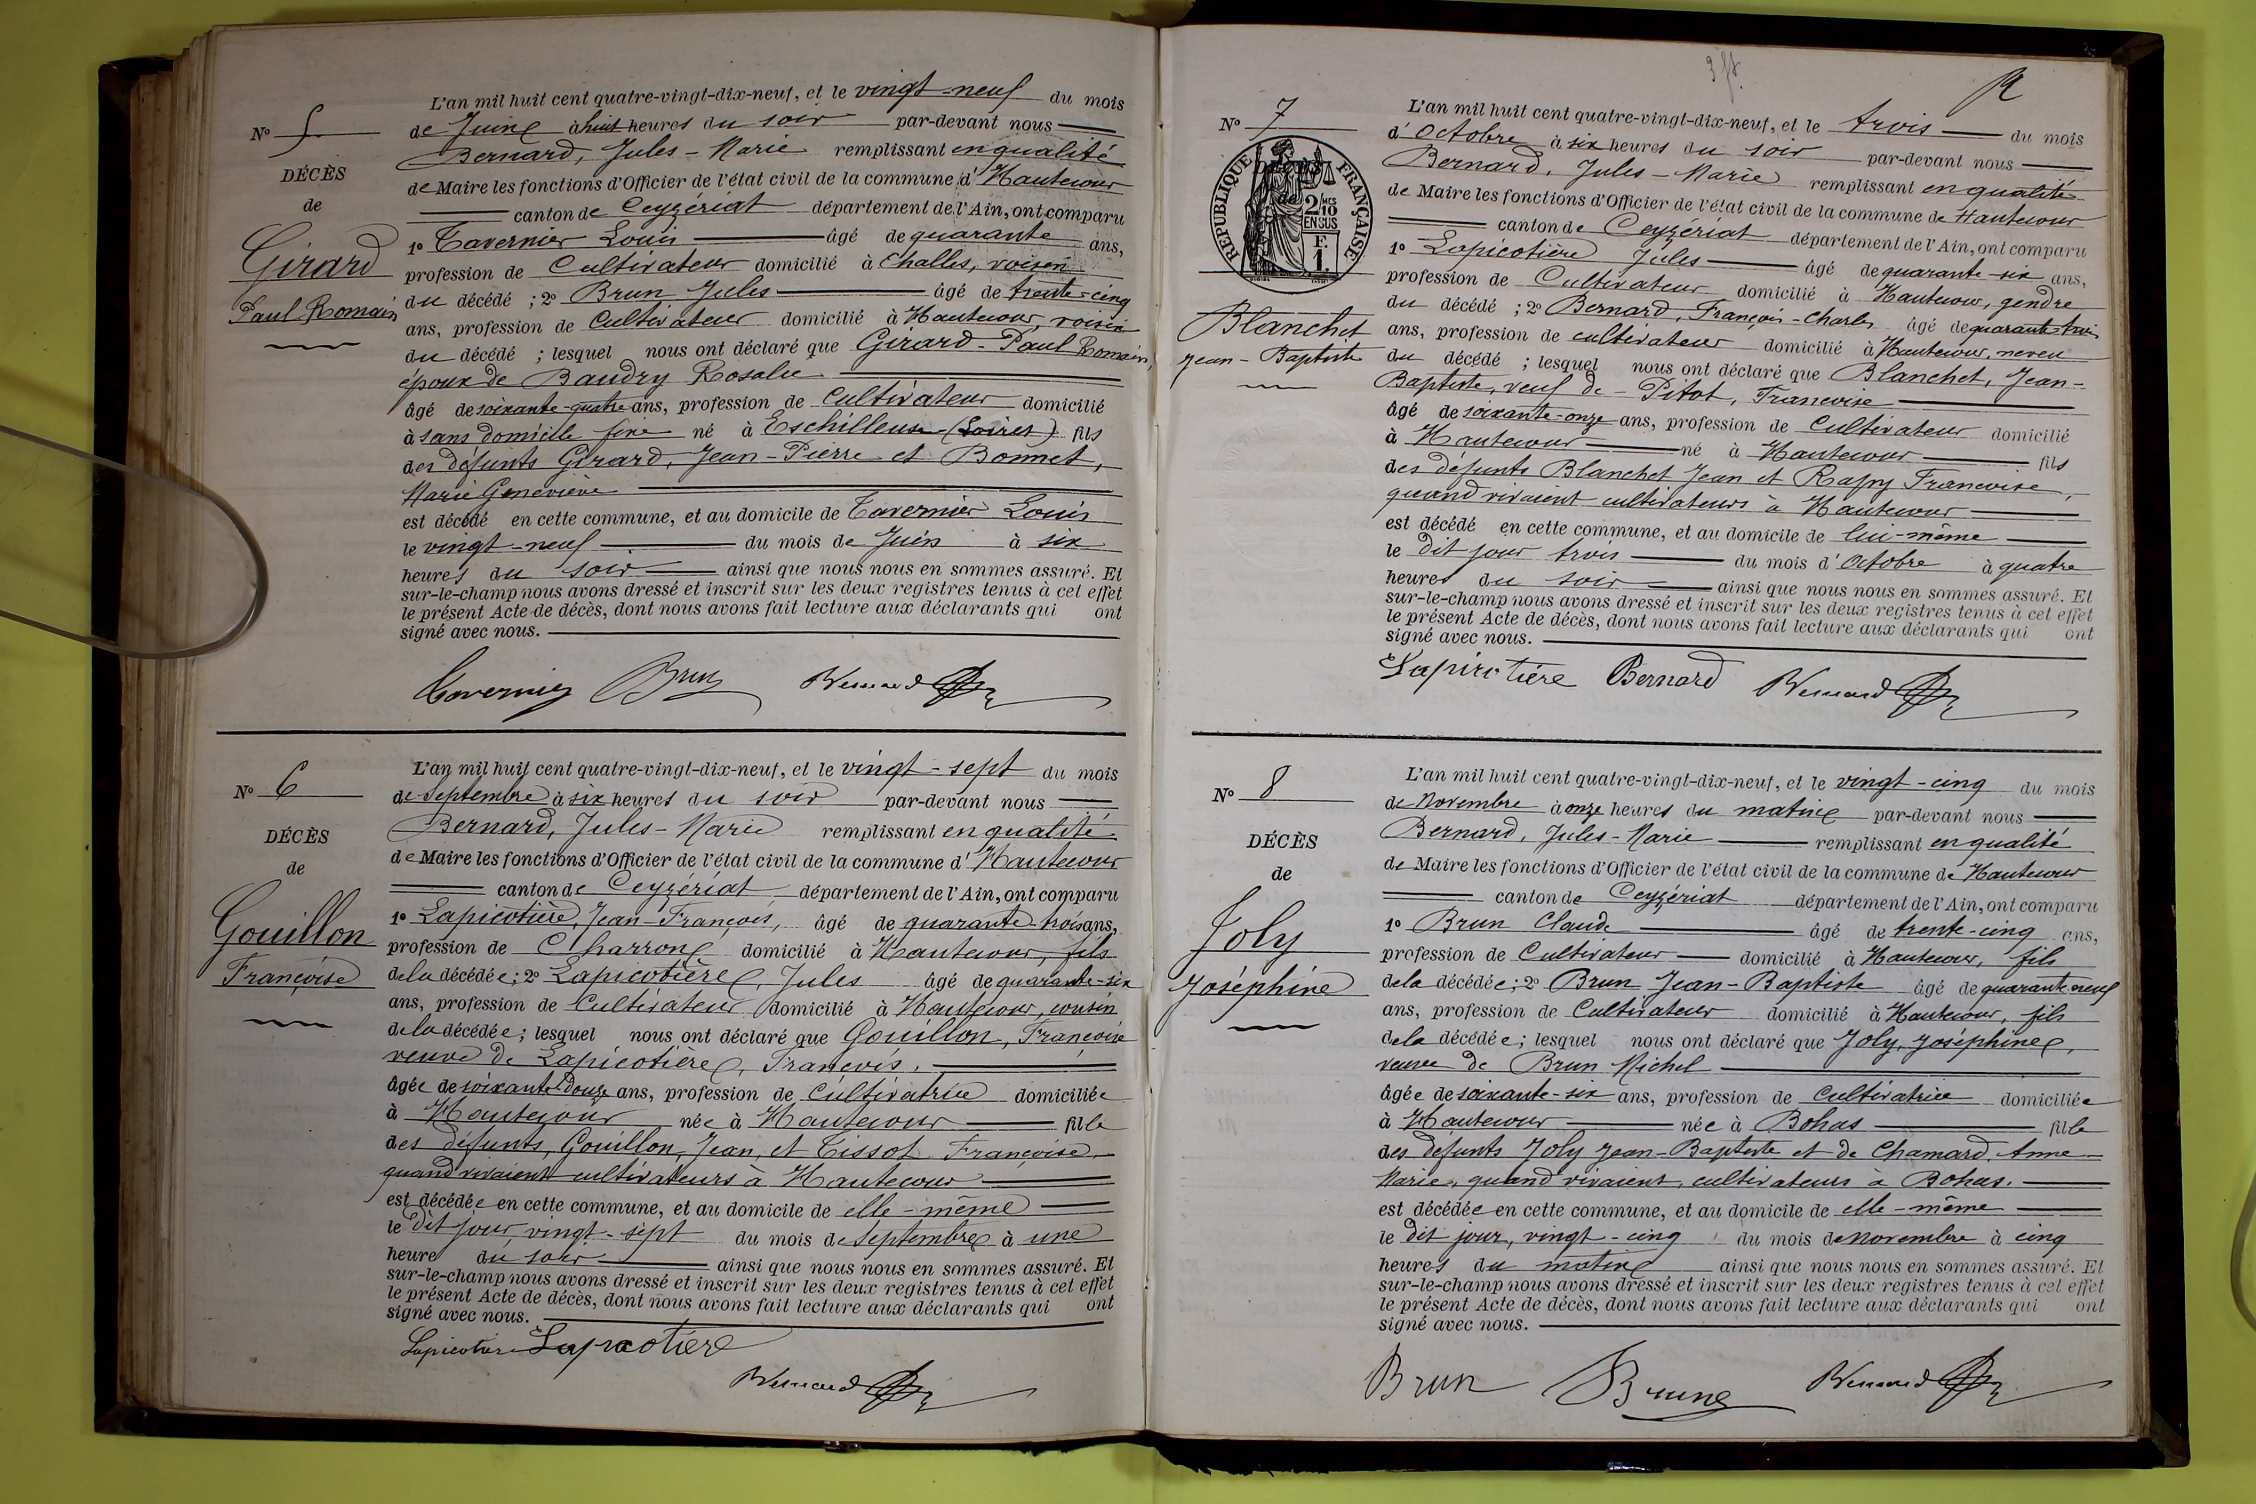 N° 5
DÉCÈS
de
Girard
Paul Romain
L'an mil huit cent quatre-vingt-dix-neuf, et le vingt-neuf du mois
de Juin à huit heures du soir par-devant nous
Bernard, Jules-Marie remplissant en qualité
de Maire les fonctions d'Officier de l'état civil de la commune d'Hautecour
canton de Ceyzériat département de l'Ain, ont comparu
1° Tavernier Louis âgé de quarante ans,
profession de Cultivateur domicilié à Challes, voisin
du décédé ; 2° Brun Jules âgé de trente-cinq
ans, profession de Cultivateur domicilié à Hautecour, voisin
du décédé ; lesquel nous ont déclaré que Girard-Paul Romain,
époux de Baudry Rosalie
âgé de soixante-quatre ans, profession de Cultivateur domicilié
à sans domicile fixe né à Eschilleuse (Loiret) fils
des défunts Girard, Jean-Pierre et Bonnet,
Marie Geneviève
est décédé en cette commune, et au domicile de Tavernier Louis
le vingt-neuf du mois de Juin à six
heures du soir ainsi que nous nous en sommes assuré. Et
sur-le-champ nous avons dressé et inscrit sur les deux registres tenus à cet effet
le présent Acte de décès, dont nous avons fait lecture aux déclarants qui ont
signé avec nous.
Tavernier Brun Bernard
N° 6
DÉCÈS
de
Gouillon
Françoise
L'an mil huit cent quatre-vingt-dix-neuf, et le vingt-sept du mois
de Septembre à six heures du soir par-devant nous
Bernard, Jules-Marie remplissant en qualité
de Maire les fonctions d'Officier de l'état civil de la commune d'Hautecour
canton de Ceyzériat département de l'Ain, ont comparu
1° Lapicotière, Jean-François, âgé de quarante-trois ans,
profession de Charron domicilié à Hautecour, fils
de la décédée ; 2° Lapicotière, Jules âgé de quarante-six
ans, profession de Cultivateur domicilié à Hautecour, cousin
de la décédée ; lesquel nous ont déclaré que Gouillon, Françoise
veuve de Lapicotière, François.
âgée de soixante-douze ans, profession de Cultivatrice domiciliée
à Hautecour née à Hautecour fille
des défunts, Gouillon, Jean, et Tissot Françoise,
quand vivaient cultivateurs à Hautecour
est décédée en cette commune, et au domicile de elle-même
le dit jour, vingt-sept du mois de Septembre à une
heure du soir ainsi que nous nous en sommes assuré. Et
sur-le-champ nous avons dressé et inscrit sur les deux registres tenus à cet effet
le présent Acte de décès, dont nous avons fait lecture aux déclarants qui ont
signé avec nous.
Lapicotière Lapicotière
Bernard
N° 7
RÉPUBLIQUE FRANÇAISE
2/10 EN SUS
F. 1.
Blanchet
Jean-Baptiste
L'an mil huit cent quatre-vingt-dix-neuf, et le trois du mois
d'Octobre à six heures du soir par-devant nous
Bernard, Jules-Marie remplissant en qualité
de Maire les fonctions d'Officier de l'état civil de la commune de Hautecour
canton de Ceyzériat département de l'Ain, ont comparu
1° Lapicotière Jules âgé de quarante-six ans,
profession de Cultivateur domicilié à Hautecour, gendre
du décédé ; 2° Bernard, François-Charles âgé de quarante-trois
ans, profession de cultivateur domicilié à Hautecour, neveu
du décédé ; lesquel nous ont déclaré que Blanchet, Jean-
Baptiste, veuf de Pitot, Francoise
âgé de soixante-onze ans, profession de Cultivateur domicilié
à Hautecour né à Hautecour fils
des défunts Blanchet Jean et Rapy Francoise,
quand vivaient cultivateurs à Hautecour
est décédé en cette commune, et au domicile de lui-même
le dit jour trois du mois d'Octobre à quatre
heures du soir ainsi que nous nous en sommes assuré. Et
sur-le-champ nous avons dressé et inscrit sur les deux registres tenus à cet effet
le présent Acte de décès, dont nous avons fait lecture aux déclarants qui ont
signé avec nous.
Lapicotière Bernard Bernard
N° 8
DÉCÈS
de
Joly
Joséphine
L'an mil huit cent quatre-vingt-dix-neuf, et le vingt-cinq du mois
de Novembre à onze heures du matin par-devant nous
Bernard, Jules-Marie remplissant en qualité
de Maire les fonctions d'Officier de l'état civil de la commune de Hautecour
canton de Ceyzériat département de l'Ain, ont comparu
1° Brun Claude âgé de trente-cinq ans,
profession de Cultivateur domicilié à Hautecour, fils
de la décédée ; 2° Brun Jean-Baptiste âgé de quarante-neuf
ans, profession de Cultivateur domicilié à Hautecour, fils
de la décédée ; lesquel nous ont déclaré que Joly, Joséphine,
veuve de Brun Michel
âgée de soixante-six ans, profession de Cultivatrice domiciliée
à Hautecour née à Bohas fille
des défunts Joly Jean-Baptiste et de Chamard, Anne
Marie, quand vivaient, cultivateurs à Bohas.
est décédée en cette commune, et au domicile de elle-même
le dit jour, vingt-cinq du mois de Novembre à cinq
heures du matin ainsi que nous nous en sommes assuré. Et
sur-le-champ nous avons dressé et inscrit sur les deux registres tenus à cet effet
le présent Acte de décès, dont nous avons fait lecture aux déclarants qui ont
signé avec nous.
Brun Brun Bernard